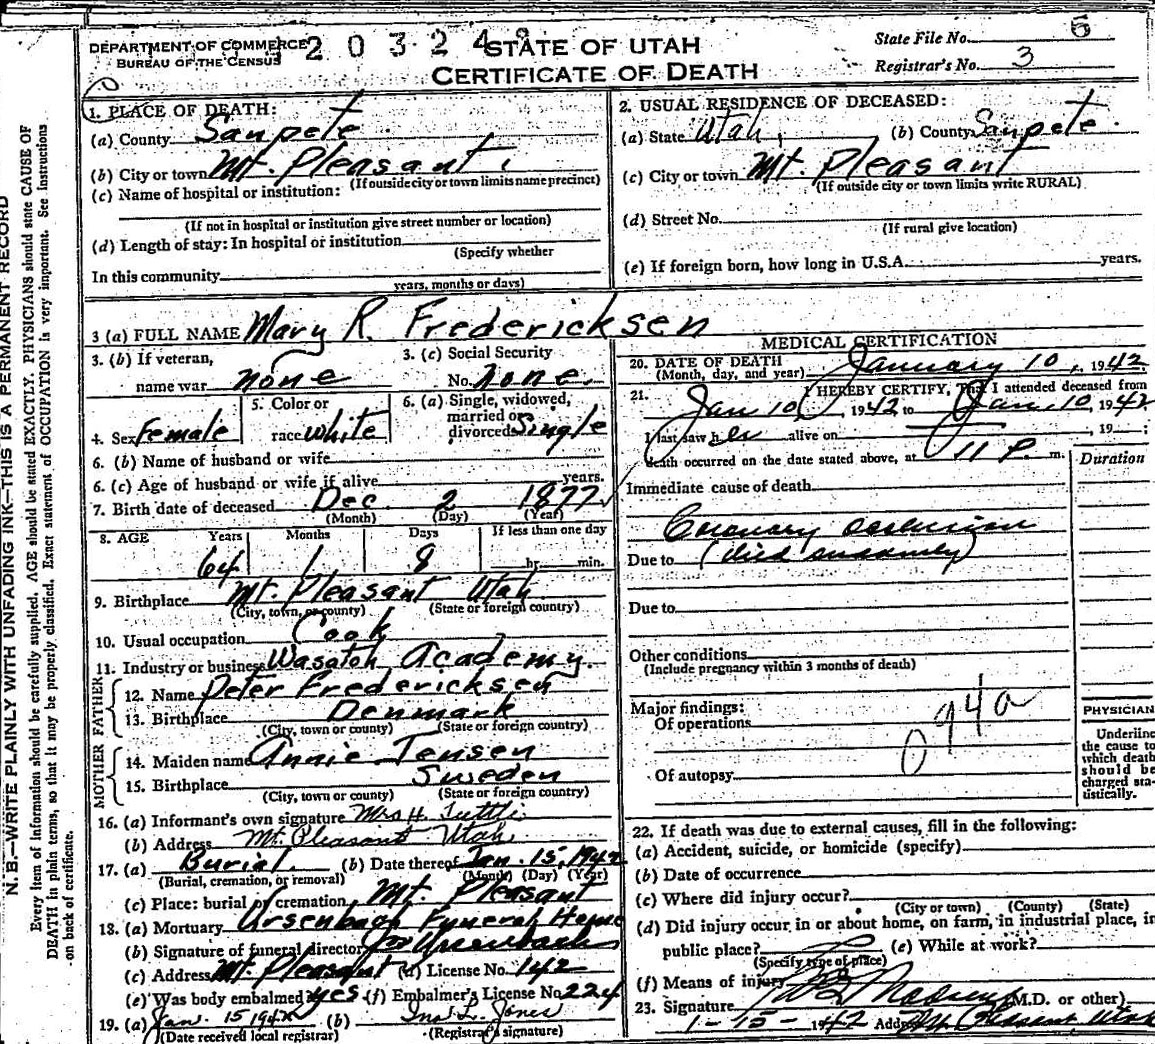 DEPARTMENT OF COMMERCE
BUREAU OF THE CENSUS
120324
STATE OF UTAH
CERTIFICATE OF DEATH
State File No. 5
Registrar's No. 3
1. PLACE OF DEATH:
(a) County Sanpete
(b) City or town Mt. Pleasant.
(If outside city or town limits name precinct)
(c) Name of hospital or institution:
(If not in hospital or institution give street number or location)
(d) Length of stay: In hospital or institution
(Specify whether
In this community
years, months or days)
2. USUAL RESIDENCE OF DECEASED:
(a) State Utah, (b) County Sanpete.
(c) City or town Mt. Pleasant
(If outside city or town limits write RURAL)
(d) Street No.
(If rural give location)
(e) If foreign born, how long in U.S.A. years.
3 (a) FULL NAME Mary R. Fredericksen
3. (b) If veteran,
name war none
3. (c) Social Security
No. none.
4. Sex Female
5. Color or
race white
6. (a) Single, widowed,
married or
divorced Single
6. (b) Name of husband or wife
6. (c) Age of husband or wife if alive years.
7. Birth date of deceased Dec 2 1877
(Month) (Day) (Year)
8. AGE Years Months Days If less than one day
64 1 8 hr. min.
9. Birthplace Mt. Pleasant Utah
(City, town, or county) (State or foreign country)
10. Usual occupation Cook
11. Industry or business Wasatch Academy.
FATHER
12. Name Peter Fredericksen
13. Birthplace Denmark
(City, town or county) (State or foreign country)
MOTHER
14. Maiden name Annie Jensen
15. Birthplace Sweden
(City, town or county) (State or foreign country)
16. (a) Informant's own signature Mrs H. Tuttle
(b) Address Mt. Pleasant Utah
17. (a) Burial (b) Date thereof Jan. 15, 1942
(Burial, cremation, or removal) (Month) (Day) (Year)
(c) Place: burial or cremation Mt. Pleasant
18. (a) Mortuary Ursenbach Funeral Home
(b) Signature of funeral director Ursenbach
(c) Address Mt. Pleasant (d) License No. 142
(e) Was body embalmed yes. (f) Embalmer's License No. 224
19. (a) Jan. 15 1942 (b) Jno. L. Jones
(Date received local registrar) (Registrar's signature)
MEDICAL CERTIFICATION
20. DATE OF DEATH January 10, 1942
(Month, day, and year)
21. I HEREBY CERTIFY, That I attended deceased from
Jan 10, 1942 to Jan 10, 1942
I last saw her alive on , 19 ;
death occurred on the date stated above, at 11 P. m.
Duration
Immediate cause of death
Coronary occlusion
Due to (died suddenly)
Due to
Other conditions
(Include pregnancy within 3 months of death)
Major findings:
Of operations
094a
Of autopsy
PHYSICIAN
Underline
the cause to
which death
should be
charged sta-
tistically.
22. If death was due to external causes, fill in the following:
(a) Accident, suicide, or homicide (specify)
(b) Date of occurrence
(c) Where did injury occur?
(City or town) (County) (State)
(d) Did injury occur in or about home, on farm, in industrial place, in
public place? (e) While at work?
(Specify type of place)
(f) Means of injury
23. Signature Madsen (M.D. or other)
1-15-1942 Address Mt Pleasant, Utah
N.B.—WRITE PLAINLY WITH UNFADING INK—THIS IS A PERMANENT RECORD
Every item of information should be carefully supplied. AGE should be stated EXACTLY. PHYSICIANS should state CAUSE OF
DEATH in plain terms, so that it may be properly classified. Exact statement of OCCUPATION is very important. See instructions
on back of certificate.